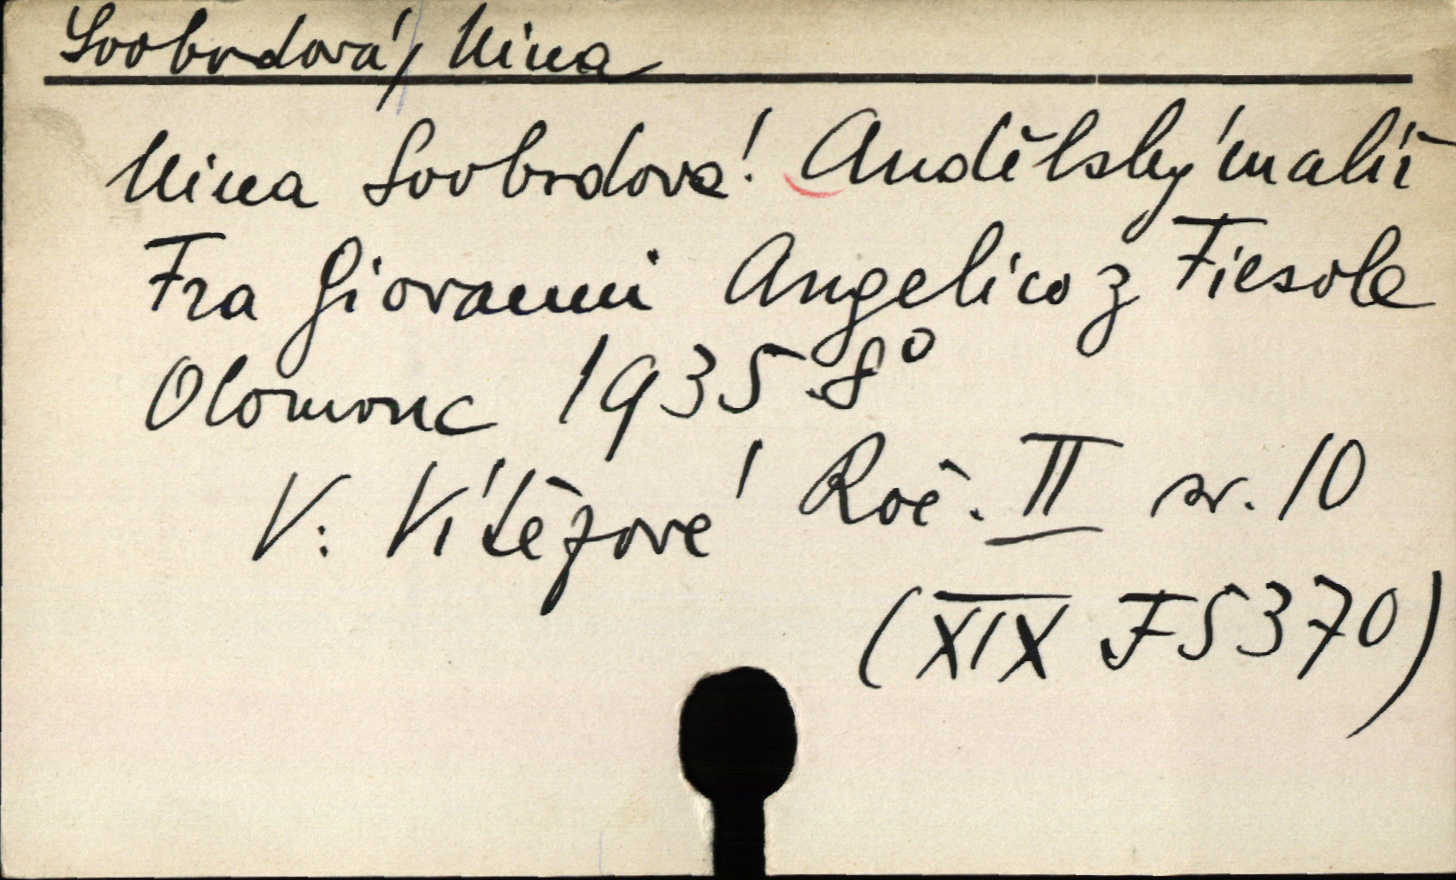 Svobodová, Nina
Nina Svobodová: Andělský malíř
Fra Giovanni Angelico z Fiesole
Olomouc 1935 8°
V: Vítězové Roč. II sv. 10
(XIX F 5370)